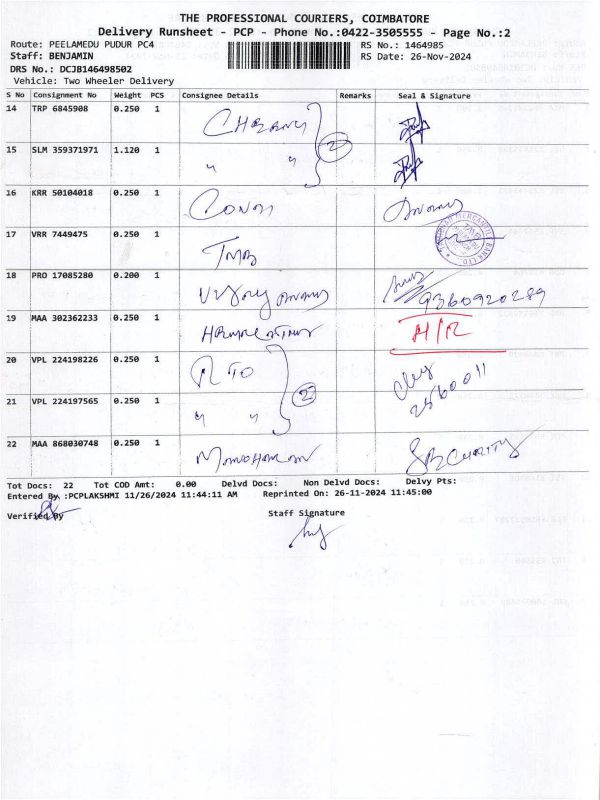 THE PROFESSIONAL COURIERS, COIMBATORE
Delivery Runsheet - PCP - Phone No.:0422-3505555 - Page No.:2
Route: PEELAMEDU PUDUR PC4 RS No.: 1464985
Staff: BENJAMIN RS Date: 26-Nov-2024
DRS No.: DCJB146498502
Vehicle: Two Wheeler Delivery
S No Consignment No Weight PCS Consignee Details Remarks Seal & Signature
14 TRP 6845908 0.250 1
15 SLM 359371971 1.120 1 " " 2
16 KRR 50104018 0.250 1
17 VRR 7449475 0.250 1 TMB
18 PRO 17085280 0.200 1 9360920289
19 MAA 302362233 0.250 1 H/R
20 VPL 224198226 0.250 1 RTO
21 VPL 224197565 0.250 1 " " 2 2560011
22 MAA 868030748 0.250 1 Manoharan
Tot Docs: 22 Tot COD Amt: 0.00 Delvd Docs: Non Delvd Docs: Delvy Pts:
Entered By :PCPLAKSHMI 11/26/2024 11:44:11 AM Reprinted On: 26-11-2024 11:45:00
Verified By Staff Signature